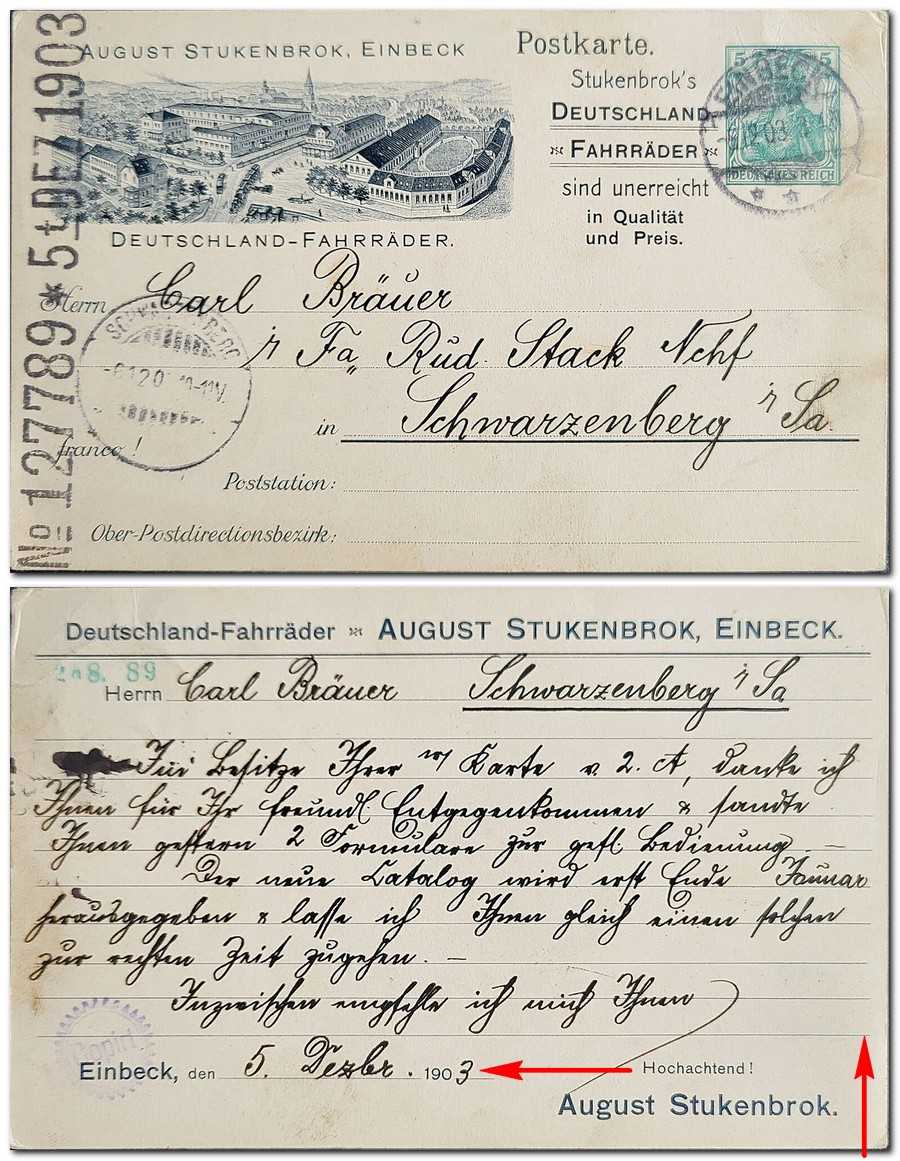 AUGUST STUKENBROK, EINBECK
DEUTSCHLAND-FAHRRÄDER.
Postkarte.
Stukenbrok's
DEUTSCHLAND-
FAHRRÄDER
sind unerreicht
in Qualität
und Preis.
5 5
DEUTSCHES REICH
EINBECK
No 127789 * 5t DEZ 1903
Herrn Carl Bräuer
i/ Fa. Rud. Stack Nchf
in Schwarzenberg i/Sa
franco!
SCHWARZENBERG
Poststation:
Ober-Postdirectionsbezirk:
Deutschland-Fahrräder AUGUST STUKENBROK, EINBECK.
89
Herrn Carl Bräuer Schwarzenberg i/Sa
Im Besitze Ihrer Karte v. 2. ct, danke ich
Ihnen für Ihr freundl. Entgegenkommen & sandte
Ihnen gestern 2 Formulare zur gefl. Bedienung. –
Der neue Catalog wird erst Ende Januar
herausgegeben & lasse ich Ihnen gleich einen solchen
zur rechten Zeit zugehen. –
Inzwischen empfehle ich mich Ihnen
Copirt
Einbeck, den 5. Dezbr. 1903
Hochachtend!
August Stukenbrok.